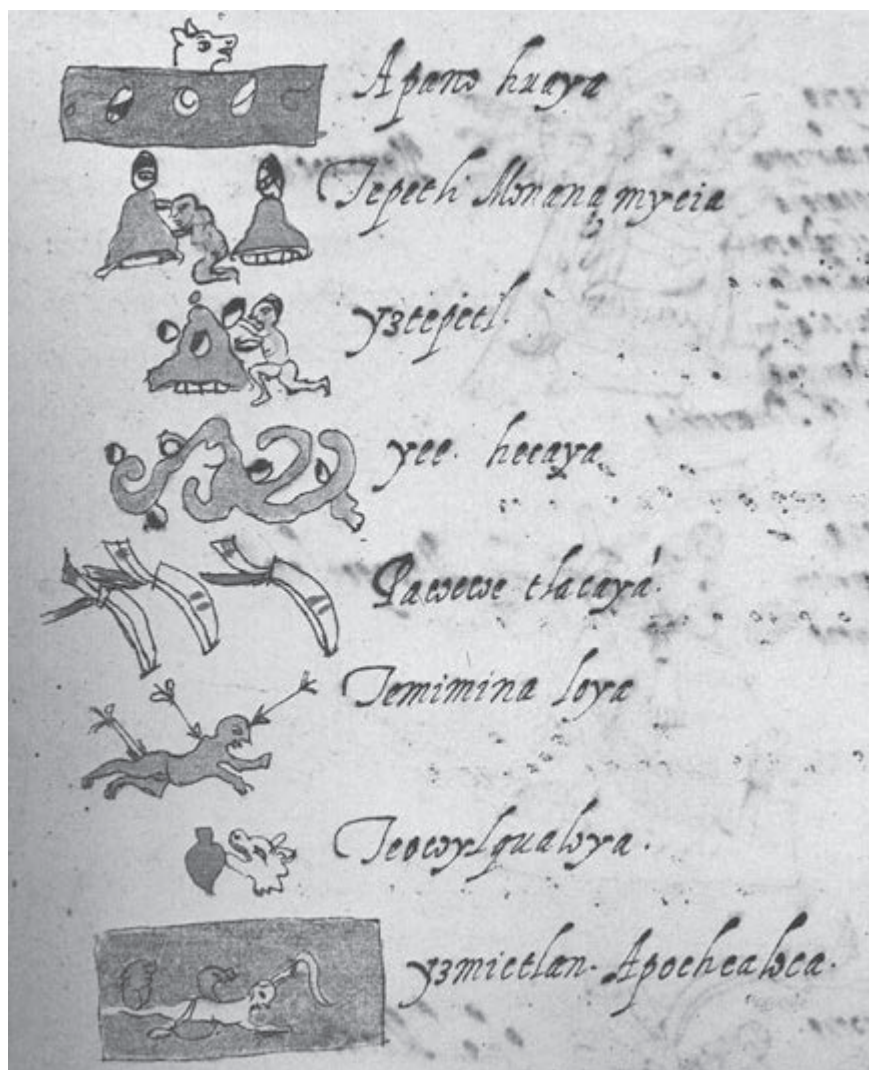 Apano huaya
Tepetli Monanamycia
yztepetl.
yee. hecaya
Pacoecoe tlacayá.
Temimina loya
Teocoylqualoya.
yzmictlan. Apochcaloca.